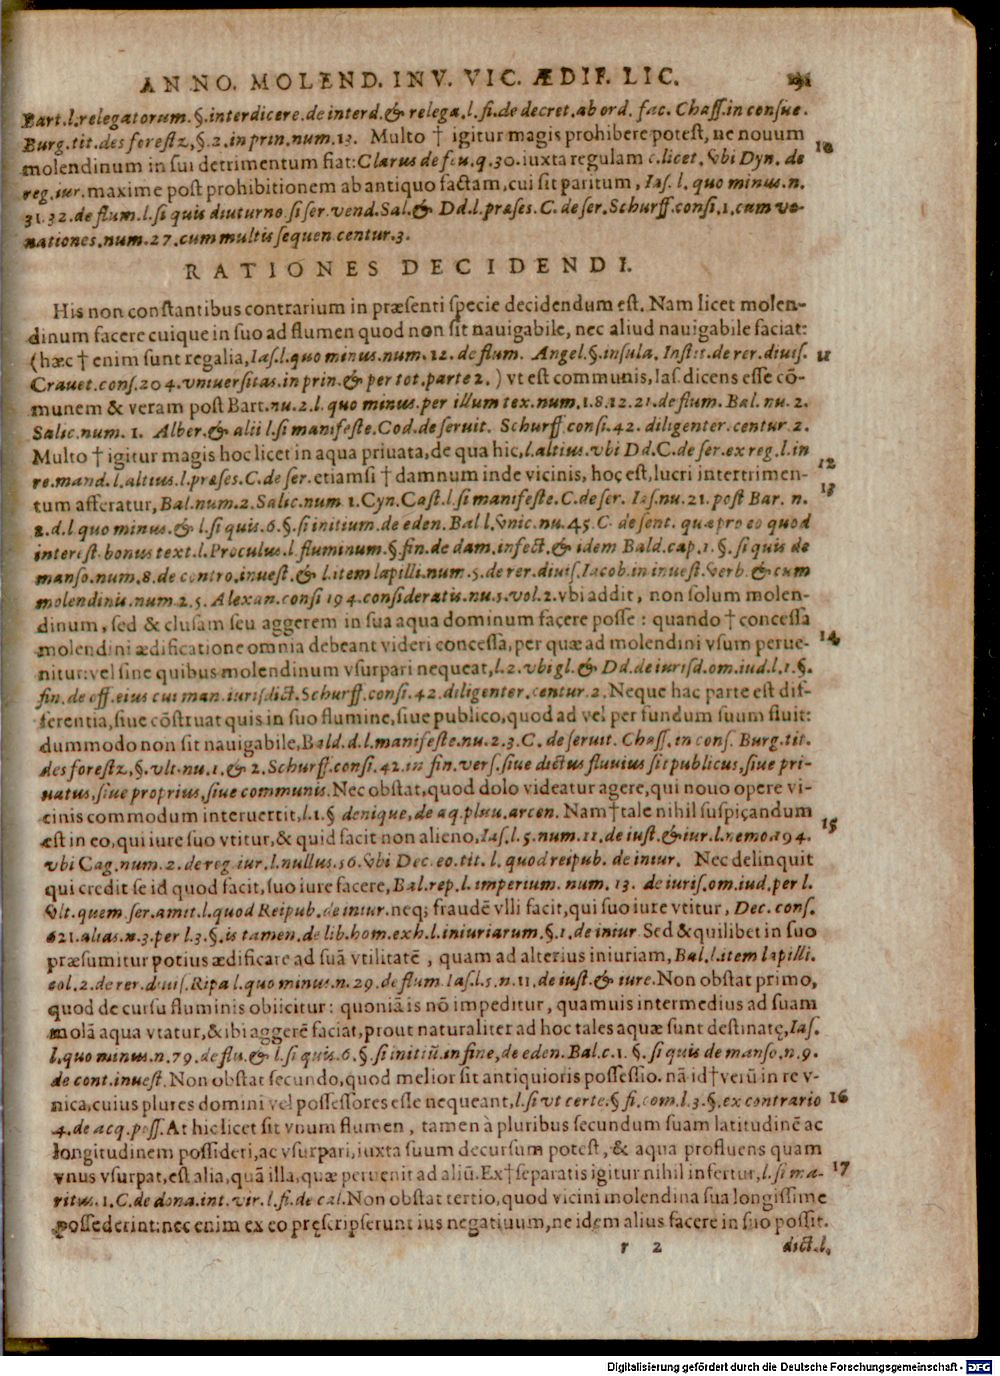 ANNO. MOLEND. INV. VIC. ÆDIF. LIC.
Bart.l.relegatorum.§.interdicere.de interd.& relega.l.fi.de decret.ab ord. fac. Chaſſ.in conſue.
Burg.tit.des foreſtz,§.2.in prin.num.13. Multo † igitur magis prohibere poteſt, ne nouum 10
molendinum in ſui detrimentum fiat: Clarus de feu.q.30.iuxta regulam c.licet. vbi Dyn. de
reg.iur. maxime poſt prohibitionem ab antiquo factam, cui ſit paritum, Iaſ. l. quo minus.n.
31.32.de flum.l.ſi quis diuturno ſi ſer.vend.Sal.& Dd.l.præſes.C. de ſer.Schurff.conſi.1.cum ve-
nationes.num.27.cum multis ſequen centur.3.
RATIONES DECIDENDI.
His non conſtantibus contrarium in præſenti ſpecie decidendum eſt. Nam licet molen-
dinum facere cuique in ſuo ad flumen quod non ſit nauigabile, nec aliud nauigabile faciat:
(hæc † enim ſunt regalia, Iaſ.l.quo minus.num.12. de flum. Angel.§.inſula. Inſtit.de rer.diuiſ. 11
Crauet.conſ.204.vniuerſitas.in prin.& per tot.parte 2.) vt eſt communis, Iaſ. dicens eſſe cō-
munem & veram poſt Bart.nu.2.l.quo minus.per illum tex.num.1.8.12.21.de flum. Bal. nu. 2.
Salic.num. 1. Alber.& alii l.ſi manifeſte.Cod.de ſeruit. Schurff.conſi.42. diligenter.centur.2.
Multo † igitur magis hoc licet in aqua priuata, de qua hic, l.altius.vbi Dd.C.de ſer.ex reg.l.in 12
re.mand.l.altius.l.præſes.C.de ſer. etiamſi † damnum inde vicinis, hoc eſt, lucri intertrimen- 13
tum afferatur, Bal.num.2.Salic.num.1.Cyn.Caſt.l.ſi manifeſte.C.de ſer. Iaſ.nu.21.poſt Bar. n.
2.d.l quo minus.& l.ſi quis.6.§.ſi initium.de eden.Bal l.vnic.nu.45.C. de ſent. quæ pro eo quod
intereſt.bonus text.l.Proculus.l.fluminum.§.fin.de dam.infect.& idem Bald.cap.1.§.ſi quis de
manſo.num.8.de contro.inueſt.& l.item lapilli.num.5.de rer.diuiſ.Iacob.in inueſt.verb.& cum
molendinis.num.25. Alexan.conſi 194.conſideratis.nu.5.vol.2.vbi addit, non ſolum molen-
dinum, ſed & cluſam ſeu aggerem in ſua aqua dominum facere poſſe: quando † conceſſa 14
molendini ædificatione omnia debeant videri conceſſa, per quæ ad molendini vſum perue-
nitur: vel ſine quibus molendinum vſurpari nequeat, l.2.vbi gl.& Dd.de iuriſd.om.iud.l.1.§.
fin.de off.eius cui man.iuriſdict.Schurff.conſi.42.diligenter.centur.2. Neque hac parte eſt dif-
ferentia, ſiue cōſtruat quis in ſuo flumine, ſiue publico, quod ad vel per fundum ſuum fluit:
dummodo non ſit nauigabile, Bald.d.l.manifeſte.nu.2.3.C.de ſeruit. Chaſſ.in conſ. Burg.tit.
des foreſtz,§.vlt.nu.1.& 2.Schurff.conſi.42.in fin.verſ.ſiue dictus fluuius ſit publicus, ſiue pri-
uatus, ſiue proprius, ſiue communis. Nec obſtat, quod dolo videatur agere, qui nouo opere vi-
cinis commodum interuertit, l.1.§ denique, de aq.pluu.arcen. Nam † tale nihil ſuſpicandum 15
eſt in eo, qui iure ſuo vtitur, & quid facit non alieno, Iaſ.l.5.num.11.de iuſt.& iur.l.nemo.194.
vbi Cag.num.2.de reg iur.l.nullus.56.vbi Dec.eo.tit. l.quod reipub. de iniur. Nec delinquit
qui credit ſe id quod facit, ſuo iure facere, Bal.rep.l.imperium. num. 13. de iuriſ.om.iud.per l.
vlt.quem ſer.amit.l.quod Reipub.de iniur. neq; fraudē vlli facit, qui ſuo iure vtitur, Dec. conſ.
621.alias.n.3.per l.3.§.is tamen.de lib.hom.exh.l.iniuriarum.§.1.de iniur Sed & quilibet in ſuo
præſumitur potius ædificare ad ſuā vtilitatē, quam ad alterius iniuriam, Bal.l.item lapilli.
col.2.de rer.diuiſ.Ripa l.quo minus.n.29.de flum.Iaſ.l.5.n.11.de iuſt.& iure. Non obſtat primo,
quod de curſu fluminis obiicitur: quoniā is nō impeditur, quamuis intermedius ad ſuam
molā aqua vtatur, & ibi aggerē faciat, prout naturaliter ad hoc tales aquæ ſunt deſtinatę, Iaſ.
l.quo minus.n.79.de flu.& l.ſi quis.6.§.ſi initiū.in fine, de eden.Bal.c.1.§.ſi quis de manſo.n.9.
de cont.inueſt. Non obſtat ſecundo, quod melior ſit antiquioris poſſeſſio. nā id † verū in re v-
nica, cuius plures domini vel poſſeſſores eſſe nequeant, l.ſi vt certe.§ fi.com.l.3.§.ex contrario 16
4.de acq.poſſ. At hic licet ſit vnum flumen, tamen à pluribus ſecundum ſuam latitudinē ac
longitudinem poſſideri, ac vſurpari, iuxta ſuum decurſum poteſt, & aqua profluens quam
vnus vſurpat, eſt alia, quā illa, quæ peruenit ad aliū. Ex † ſeparatis igitur nihil infertur, l.ſi ma- 17
ritus.1.C.de dona.int.vir.l.fi.de cal. Non obſtat tertio, quod vicini molendina ſua longiſſime
poſſederint: nec enim ex eo pręſcripſerunt ius negatiuum, ne idem alius facere in ſuo poſſit.
r 2 dict.l.
Digitalisierung gefördert durch die Deutsche Forschungsgemeinschaft - DFG